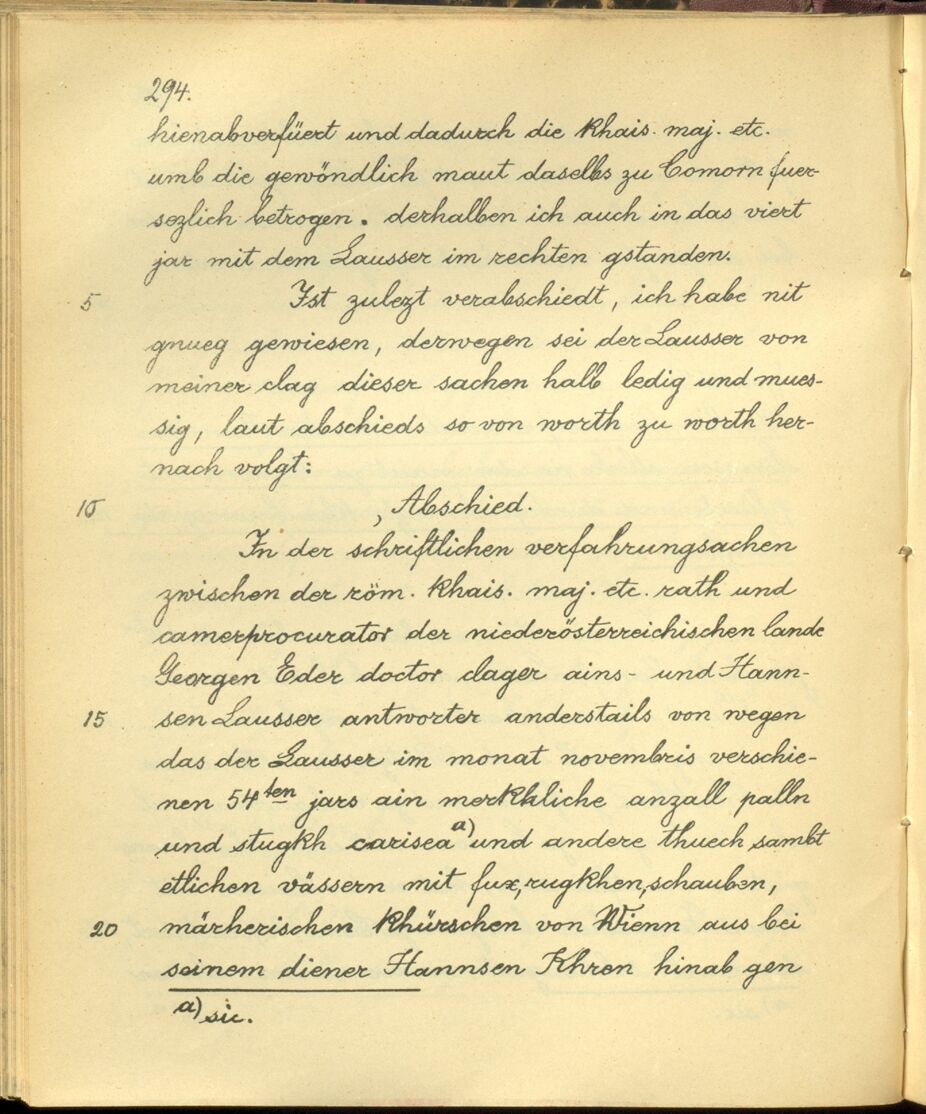 294.
hienabverfüert und dadurch die khais. maj. etc.
umb die gewöndlich maut daselbs zu Comorn fuer-
sezlich betrogen. derhalben ich auch in das viert
jar mit dem Lausser im rechten gstanden.
5 Ist zulezt verabschiedt, ich habe nit
gnueg gewiesen, derwegen sei der Lausser von
meiner clag dieser sachen halb ledig und mues-
sig, laut abschieds so von worth zu worth her-
nach volgt:
10 , Abschied.
In der schriftlichen verfahrungsachen
zwischen der röm. khais. maj. etc. rath und
camerprocurator der niederösterreichischen lande
Georgen Eder doctor clager ains- und Hann-
15 sen Lausser antworter anderstails von wegen
das der Lausser im monat novembris verschie-
nen 54ten jars ain merkhliche anzall palln
und stugkh carisea a) und andere thuech sambt
etlichen vässern mit fux, rugkhen, schauben,
20 märherischen khürschen von Wienn aus bei
seinem diener Hannsen Khren hinab gen
a) sic.